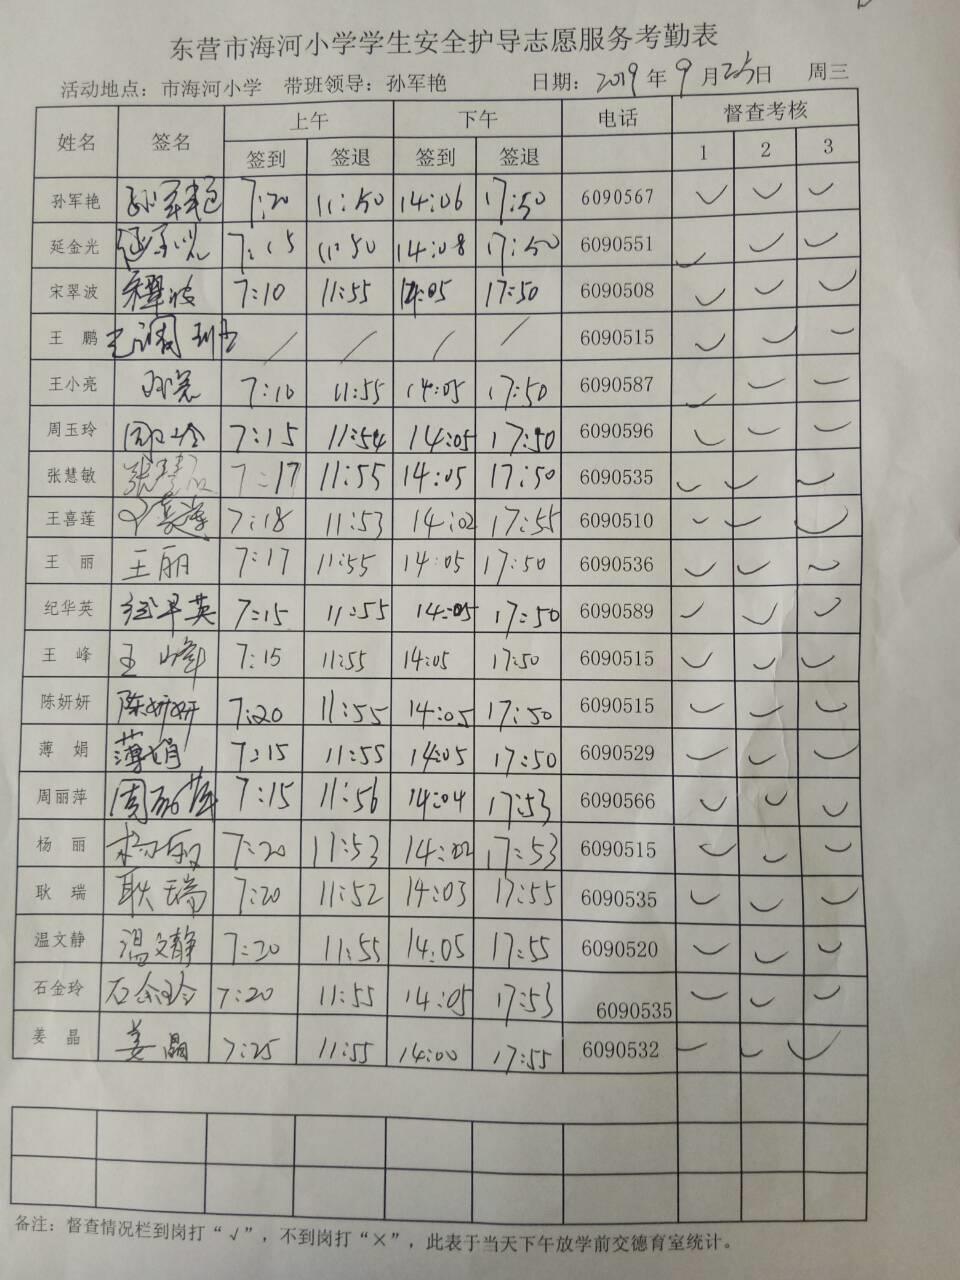 东营市海河小学学生安全护导志愿服务考勤表
活动地点：市海河小学 带班领导：孙军艳 日期：2019年9月25日 周三
姓名 签名 上午 下午 电话 督查考核
签到 签退 签到 签退 1 2 3
孙军艳 孙军艳 7:20 11:50 14:06 17:50 6090567 ✓ ✓ ✓
延金光 延金光 7:15 11:50 14:08 17:50 6090551 ✓ ✓ ✓
宋翠波 宋翠波 7:10 11:55 14:05 17:50 6090508 ✓ ✓ ✓
王 鹏 已调班 / / / / 6090515 ✓ ✓ ✓
王小亮 7:10 11:55 14:05 17:50 6090587 ✓ ✓ ✓
周玉玲 周玉玲 7:15 11:54 14:05 17:50 6090596 ✓ ✓ ✓
张慧敏 张慧敏 7:17 11:55 14:05 17:50 6090535 ✓ ✓ ✓
王喜莲 王喜莲 7:18 11:53 14:02 17:55 6090510 ✓ ✓ ✓
王 丽 王丽 7:17 11:55 14:05 17:50 6090536 ✓ ✓ ✓
纪华英 纪华英 7:15 11:55 14:05 17:50 6090589 ✓ ✓ ✓
王 峰 王峰 7:15 11:55 14:05 17:50 6090515 ✓ ✓ ✓
陈妍妍 陈妍妍 7:20 11:55 14:05 17:50 6090515 ✓ ✓ ✓
薄 娟 薄娟 7:15 11:55 14:05 17:50 6090529 ✓ ✓ ✓
周丽萍 周丽萍 7:15 11:56 14:04 17:53 6090566 ✓ ✓ ✓
杨 丽 杨丽 7:20 11:53 14:02 17:53 6090515 ✓ ✓ ✓
耿 瑞 耿瑞 7:20 11:52 14:03 17:55 6090535 ✓ ✓ ✓
温文静 温文静 7:20 11:55 14:05 17:55 6090520 ✓ ✓ ✓
石金玲 石金玲 7:20 11:55 14:05 17:53 6090535 ✓ ✓ ✓
姜 晶 姜晶 7:25 11:55 14:00 17:55 6090532 ✓ ✓ ✓
备注：督查情况栏到岗打“√”，不到岗打“×”，此表于当天下午放学前交德育室统计。